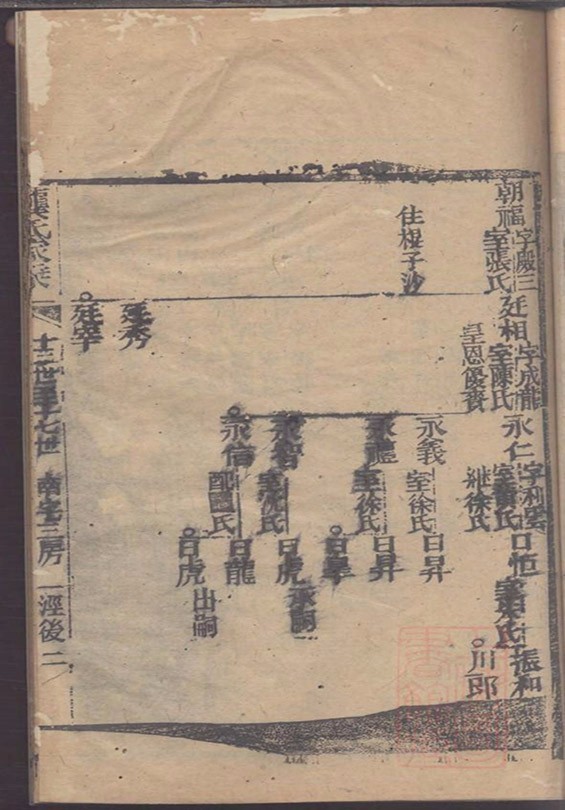 朝福 字殿三
室張氏
住棍子沙
廷相 字成龍
室陳氏
皇恩優賚
廷秀
廷宰
永仁 字利賓
室黃氏
繼徐氏
永義
室徐氏
永禮
室徐氏
永智
室沈氏
永信
配氏
日恒
日昇
日昇
日虎
承嗣
日龍
日虎
出嗣
振和
川郎
龔氏家乘
十三世至十七世 南宅三房 一涇後 二